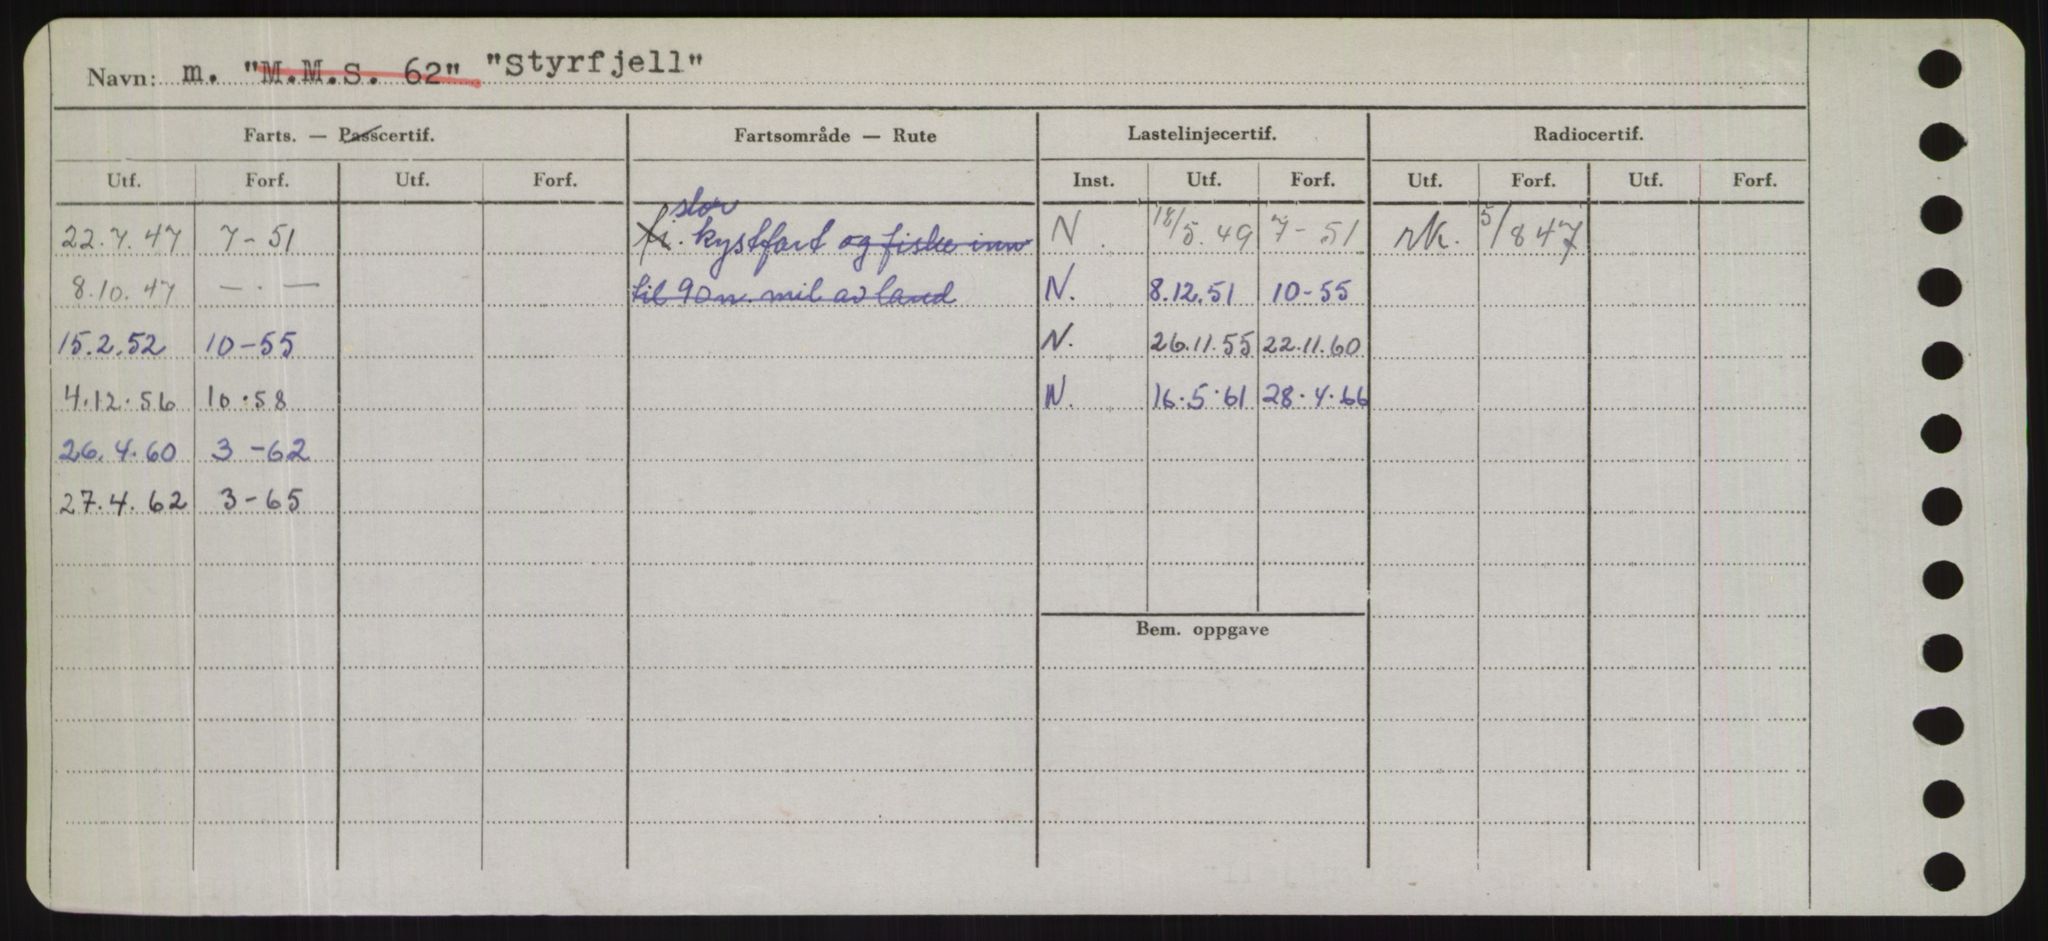 Navn: m. "M.M.S. 62" "Styrfjell"
Farts. — Passcertif. Fartsområde — Rute Lastelinjecertif. Radiocertif.
Utf. Forf. Utf. Forf. Inst. Utf. Forf. Utf. Forf. Utf. Forf.
stor
22.7.47 7-51 kystfart og fiske inn N. 18/5.49 7-51 rk. 5/8 47
8.10.47 — . — til 90 n. mil av land N. 8.12.51 10-55
15.2.52 10-55 N. 26.11.55 22.11.60
4.12.56 10.58 N. 16.5.61 28.4.66
26.4.60 3-62
27.4.62 3-65
Bem. oppgave